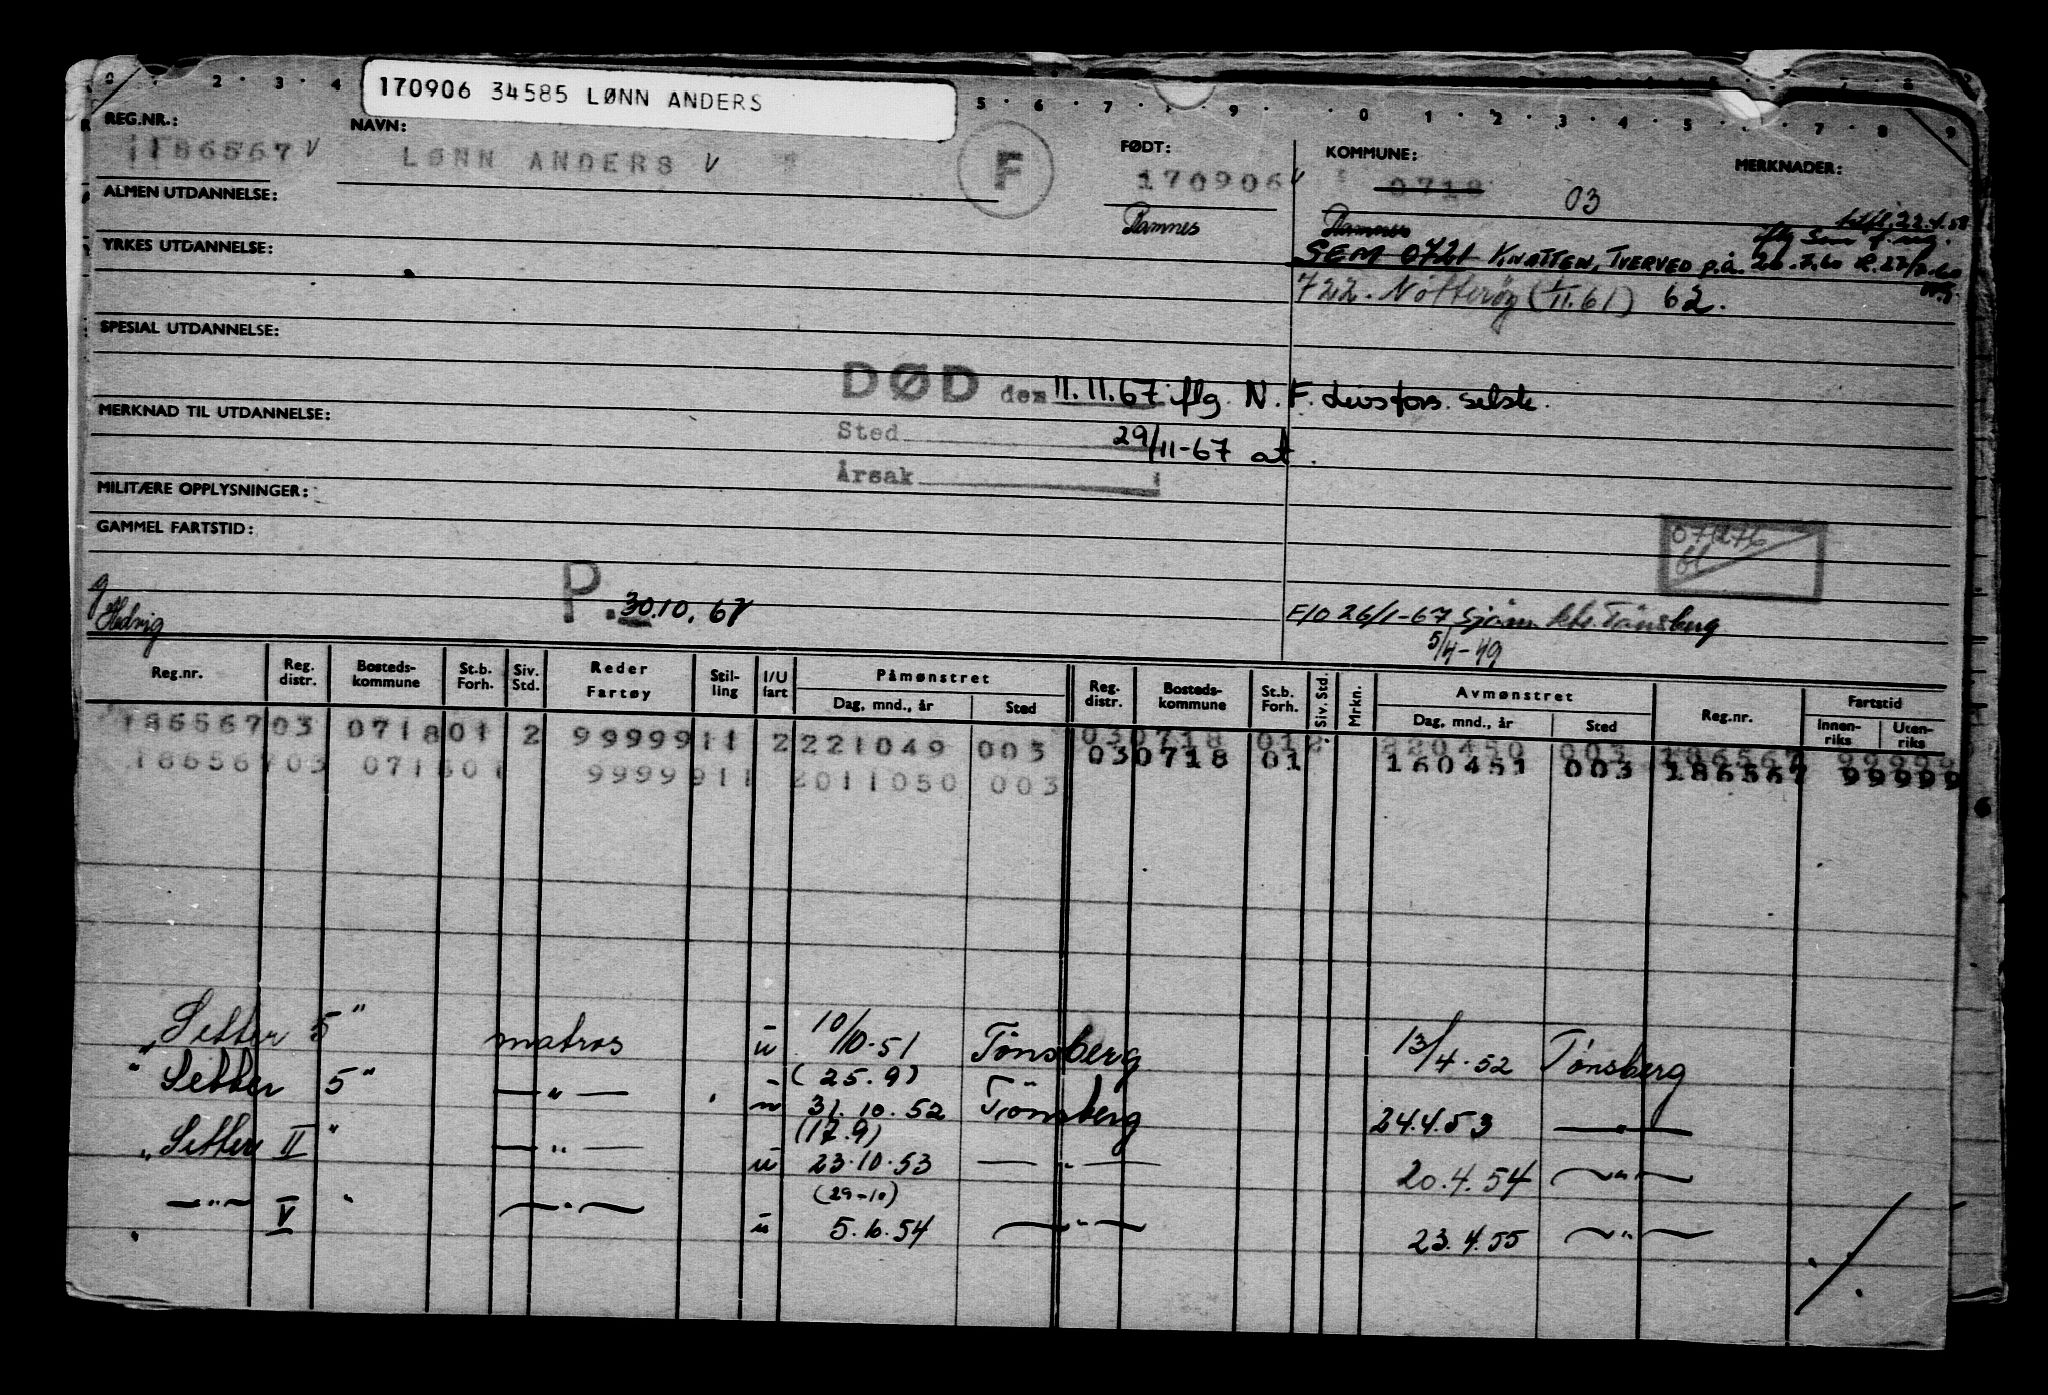 0 2 3 4 5 6 7 9 0 1 2 3 4 5 7 8 9
170906 34585 LØNN ANDERS
REG.NR.: NAVN: FØDT: KOMMUNE: MERKNADER:
186567 V LØNN ANDERS V F 170906 V 0718 03
ALMEN UTDANNELSE:
Ramnes Ramnes
YRKES UTDANNELSE:
SEM 0721 KNATTEN, TVERVED p.å. 20.7.60
722. Nøtterøy (1/11.61) 62.
SPESIAL UTDANNELSE:
DØD den 11.11.67 iflg N. F. livsfors. selsk.
MERKNAD TIL UTDANNELSE:
Sted 29/11-67 at.
Årsak
MILITÆRE OPPLYSNINGER:
GAMMEL FARTSTID:
P. 30.10.67
g Hedvig
F/O 26/1-67 Sjøm. ktr. Tönsberg
5/4-49
Reg.nr. Reg. distr. Bosteds-kommune St.b. Forh. Siv. Std. Reder Fartøy Stil-ling I/U fart Påmønstret Dag, mnd., år Sted Reg. distr. Bosteds-kommune St.b. Forh. Siv. Std. Mrkn. Avmønstret Dag, mnd., år Sted Reg.nr. Fartstid Innen-riks Uten-riks
186567 03 0718 01 2 9999 911 2 221049 003 03 0718 01 2 220450 003 186567 99999
186567 03 0718 01 9999 911 2 011050 003 03 0718 01 160451 003 186567 99999
„Setter 5" matros ū 10/10.51 Tönsberg 13/4.52 Tönsberg
(25.9)
" Setter 5" —"— ū 31.10.52 Tönsberg 24.4.53 —"—
(17.9)
„Setter II" —"— ū 23.10.53 —"— 20.4.54 —"—
(29-10)
—"— V " —"— ū 5.10.54 —"— 23.4.55 —"—